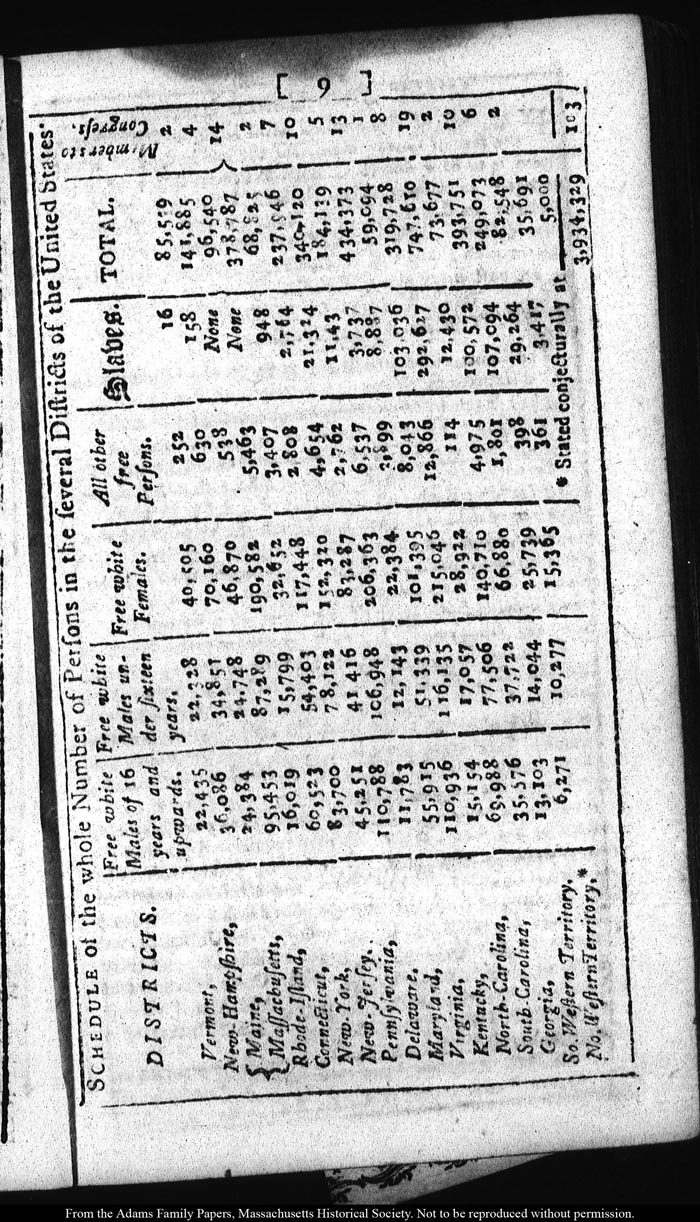 [ 9 ]
SCHEDULE of the whole Number of Perſons in the ſeveral Diſtricts of the United States.
DISTRICTS. Free white Males of 16 years and upwards. Free white Males under ſixteen years. Free white Females. All other free Perſons. Slaves. TOTAL. Members to Congreſs.
Vermont, 22,435 22,328 40,505 252 16 85,539 2
New-Hampſhire, 36,086 34,851 70,160 630 158 141,885 4
{ Maine, 24,384 24,748 46,870 538 None 96,540 } 14
{ Maſſachuſetts, 95,453 87,289 190,582 5,463 None 378,787
Rhode-Iſland, 16,019 15,799 32,652 3,407 948 68,825 2
Connecticut, 60,523 54,403 117,448 2,808 2,764 237,946 7
New-York, 83,700 78,122 152,320 4,654 21,324 340,120 10
New-Jerſey, 45,251 41 416 83,287 2,762 11,43 184,139 5
Pennſylvania, 110,788 106,948 206,363 6,537 3,737 434,373 13
Delaware. 11,783 12,143 22,384 3,899 8,887 59,094 1
Maryland, 55,915 51,339 101,395 8,043 103,036 319,728 8
Virginia, 110,936 116,135 215,046 12,866 292,627 747,610 19
Kentucky, 15,154 17,057 28,922 114 12,430 73,677 2
North-Carolina, 69,988 77,506 140,710 4,975 100,572 393,751 10
South Carolina, 35,576 37,722 66,880 1,801 107,094 249,073 6
Georgia, 13,103 14,044 25,739 398 29,264 82,548 2
So. Weſtern Territory. 6,271 10,277 15,365 361 3,417 35,691
No. Weſtern Territory.* * Stated conjecturally at 5,000
3,934,329 103
From the Adams Family Papers, Massachusetts Historical Society. Not to be reproduced without permission.